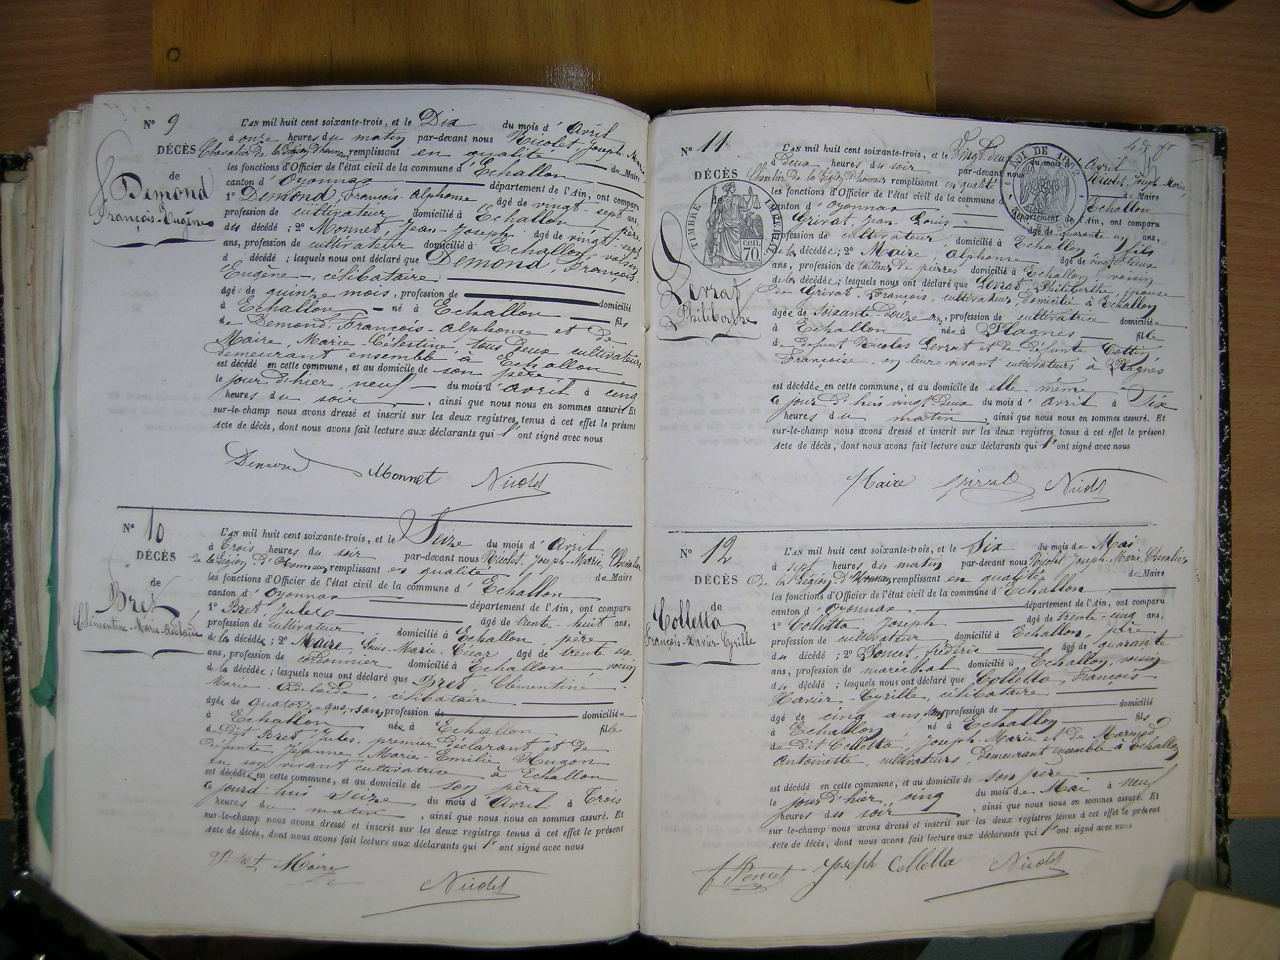 N° 9
DÉCÈS
de
Demond
François-Eugène
L'AN mil huit cent soixante-trois, et le Dix du mois d'Avril
à onze heures du matin par-devant nous Nicolet, Joseph, Marie,
Chevalier de la Légion d'honneur, remplissant en qualité de Maire
les fonctions d'Officier de l'état civil de la commune d'Echallon
canton d'Oyonnax département de l'Ain, ont comparu
1° Demond, François, Alphonse âgé de vingt-sept ans,
profession de cultivateur domicilié à Echallon, père
du décédé ; 2° Monnet, Jean-Joseph âgé de vingt-sept
ans, profession de cultivateur domicilié à Echallon, voisin
d décédé ; lesquels nous ont déclaré que Demond, François
Eugène, célibataire
âgé de quinze mois, profession de domicilié
à Echallon né à Echallon fils
de Demond, François-Alphonse et de
Maire, Marie-Célestine, tous deux cultivateurs
demeurant ensemble à Echallon
est décédé en cette commune, et au domicile de son père
le jour d'hier, neuf du mois d'avril à cinq
heures du soir, ainsi que nous nous en sommes assuré. Et
sur-le-champ nous avons dressé et inscrit sur les deux registres tenus à cet effet le présent
acte de décès, dont nous avons fait lecture aux déclarants qui l'ont signé avec nous
Demond Monnet Nicolet
N° 10
DÉCÈS
de
Bret
Clémentine-Marie-Adélaïde
L'AN mil huit cent soixante-trois, et le Seize du mois d'Avril
à Trois heures du soir par-devant nous Nicolet, Joseph-Marie, Chevalier
de la Légion d'Honneur, remplissant en qualité de Maire
les fonctions d'Officier de l'état civil de la commune d'Echallon
canton d'Oyonnax département de l'Ain, ont comparu
1° Bret Jules âgé de trente huit ans,
profession de cultivateur domicilié à Echallon, père
de la décédée ; 2° Maire, âgé de trente
ans, profession de domicilié à Echallon, voisin
d la décédée ; lesquels nous ont déclaré que Bret Clémentine
Marie Adélaïde, célibataire
âgée de quatorze ans, sans profession de domiciliée
à Echallon née à Echallon fille
d Dit Bret Jules, premier déclarant et de
défunte Jeanne-Marie-Emilie Hugon
en son vivant cultivatrice à Echallon
est décédée en cette commune, et au domicile de son père
ce jourd'hui seize du mois d'Avril à Trois
heures du matin, ainsi que nous nous en sommes assuré. Et
sur-le-champ nous avons dressé et inscrit sur les deux registres tenus à cet effet le présent
acte de décès, dont nous avons fait lecture aux déclarants qui l'ont signé avec nous
Bret Maire Nicolet
N° 11
DÉCÈS
de
TIMBRE IMPÉRIAL
70 CEN.
Levrat
Philiberthe
L'AN mil huit cent soixante-trois, et le Vingt deux du mois d'Avril
à Deux heures du soir par-devant nous Nicolet, Joseph, Marie,
Chevalier de la Légion d'Honneur remplissant en qualité de Maire
les fonctions d'Officier de l'état civil de la commune d'Echallon
canton d'Oyonnax département de l'Ain, ont comparu
Grivat Jean Louis âgé de quarante un ans,
profession de cultivateur, domicilié à Echallon, fils
de la décédée ; 2° Maire, Alphonse âgé de
ans, profession de tailleur de pierres domicilié à Echallon, voisin
de la décédée ; lesquels nous ont déclaré que Levrat, Philiberthe, veuve
de Grivat, François, cultivateur, domicilié à Echallon
âgée de soixante douze ans, profession de cultivatrice domiciliée
à Echallon née à Plagnes fille
d défunt Nicolas Levrat et de défunte Cottin
Françoise en leur vivant cultivateurs à Plagnes
est décédée en cette commune, et au domicile de elle même
ce jourd'hui vingt deux du mois d'Avril à Six
heures du matin, ainsi que nous nous en sommes assuré. Et
sur-le-champ nous avons dressé et inscrit sur les deux registres tenus à cet effet le présent
acte de décès, dont nous avons fait lecture aux déclarants qui l'ont signé avec nous
Maire Grivat Nicolet
N° 12
DÉCÈS
de
Colletta
François-Xavier-Cyrille
L'AN mil huit cent soixante-trois, et le Six du mois de Mai
à sept heures du matin par-devant nous Nicolet, Joseph, Marie Chevalier
De la Légion d'Honneur, remplissant en qualité de Maire
les fonctions d'Officier de l'état civil de la commune d'Echallon
canton d'Oyonnax département de l'Ain, ont comparu
1° Colletta Joseph âgé de trente-cinq ans,
profession de cultivateur domicilié à Echallon, père
du décédé ; 2° âgé de quarante
ans, profession de maréchal domicilié à Echallon, voisin
du décédé ; lesquels nous ont déclaré que Colletta, François
Xavier, Cyrille, célibataire
âgé de cinq ans, sans profession de domicilié
à Echallon né à Echallon fils
du Dit Colletta, Joseph, Marie et de
Antoinette, cultivateurs, demeurant ensemble à Echallon
est décédé en cette commune, et au domicile de son père
le jour d'hier, cinq du mois de Mai à neuf
heures du soir, ainsi que nous nous en sommes assuré. Et
sur-le-champ nous avons dressé et inscrit sur les deux registres tenus à cet effet le présent
acte de décès, dont nous avons fait lecture aux déclarants qui l'ont signé avec nous
Joseph Colletta Nicolet